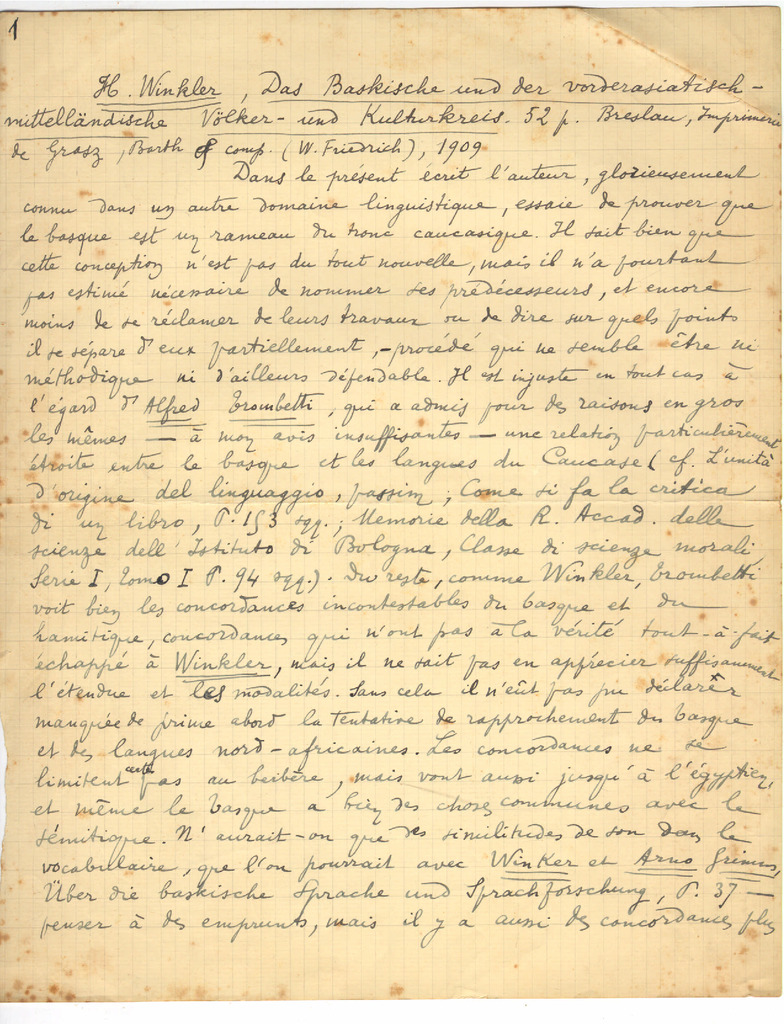 1
H. Winkler, Das Baskische und der vorderasiatisch-
mittelländische Völker- und Kulturkreis. 52 p. Breslau, Imprimerie
de Grasz, Barth & comp. (W. Friedrich), 1909
Dans le présent écrit l'auteur, glorieusement
connu dans un autre domaine linguistique, essaie de prouver que
le basque est un rameau du tronc caucasique. Il sait bien que
cette conception n'est pas du tout nouvelle, mais il n'a pourtant
pas estimé nécessaire de nommer ses prédécesseurs, et encore
moins de se réclamer de leurs travaux ou de dire sur quels points
il se sépare d'eux partiellement, – procédé qui ne semble être ni
méthodique ni d'ailleurs défendable. Il est injuste en tout cas à
l'égard d'Alfred Trombetti, qui a admis pour des raisons en gros
les mêmes — à mon avis insuffisantes — une relation particulièrement
étroite entre le basque et les langues du Caucase (cf. L'unità
d'origine del linguaggio, passim; Come si fa la critica
di un libro, P. 153 sqq.; Memorie della R. Accad. delle
scienze dell'Istituto di Bologna, Classe di scienze morali,
Serie I, Tomo I P. 94 sqq.). Du reste, comme Winkler, Trombetti
voit bien les concordances incontestables du basque et du
hamitique, concordances qui n'ont pas à la vérité tout-à-fait
échappé à Winkler, mais il ne sait pas en apprécier suffisamment
l'étendue et les modalités. Sans cela il n'eût pas pu déclarer
manquée de prime abord la tentative de rapprochement du basque
et des langues nord-africaines. Les concordances ne se
limitent certes pas au berbère, mais vont aussi jusqu'à l'égyptien,
et même le basque a bien des choses communes avec le
sémitique. N'aurait-on que des similitudes de son dans le
vocabulaire, que l'on pourrait avec Winkler et Arno Grimm,
Über die baskische Sprache und Sprachforschung, P. 37 —
penser à des emprunts, mais il y a aussi des concordances plus